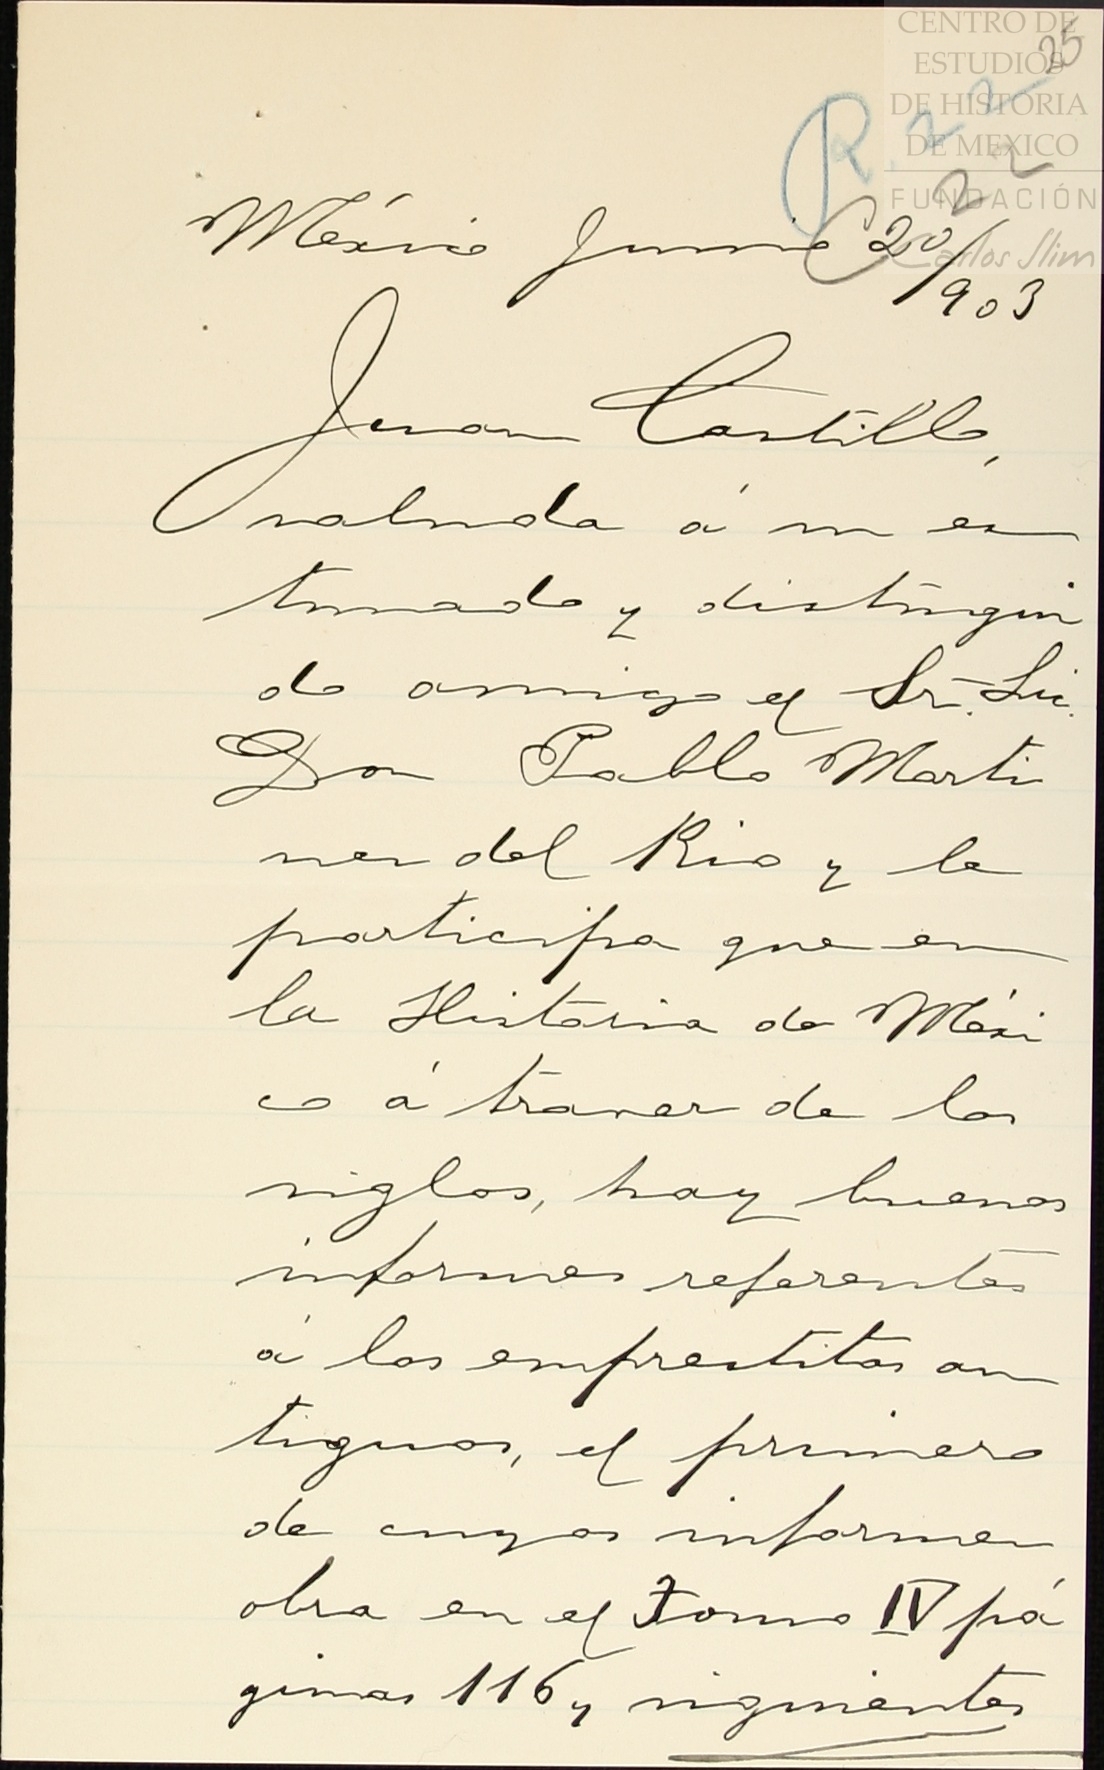 CENTRO DE
ESTUDIOS
DE HISTORIA
DE MEXICO
FUNDACIÓN
Carlos Slim
25
R. 22
C 22
México Junio 20/903
Juan Castillo,
saluda á su es
timado y distingui
do amigo el Sr. Lic.
Don Pablo Marti
nez del Rio y le
participa que en
la Historia de Méxi
co á traves de los
siglos, hay buenos
informes referentes
á los emprestitos an
tiguos, el primero
de cuyos informes
obra en el Tomo IV pá
ginas 116 y siguientes